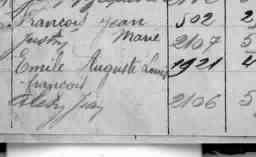 François Jean 502 2
Justin Marie 2107 5
Emile Auguste Louis 1921 4
François
2106 5